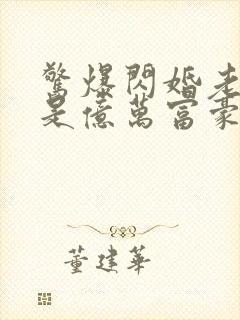 驚爆閃婚老
是億萬富豪
董建華